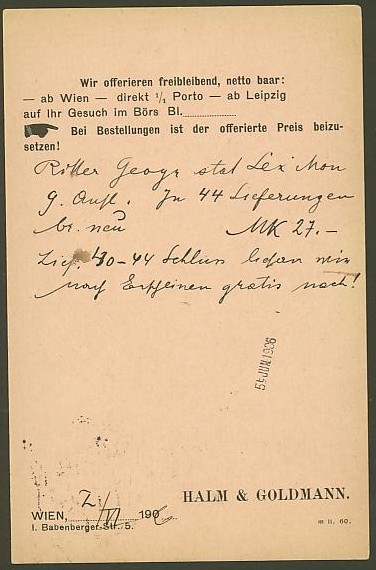 Wir offerieren freibleibend, netto baar:
— ab Wien — direkt 1/1 Porto — ab Leipzig
auf Ihr Gesuch im Börs Bl.
Bei Bestellungen ist der offerierte Preis beizu-
setzen!
Ritter Geogr stat Lexikon
9. Aufl. In 44 Lieferungen
br. neu MK 27.–
Lief. 40–44 Schluss liefern wir
nach Erscheinen gratis nach!
JUN 1906
HALM & GOLDMANN.
WIEN, 2/VI 190
I. Babenberger-Str. 5.
m II. 60.